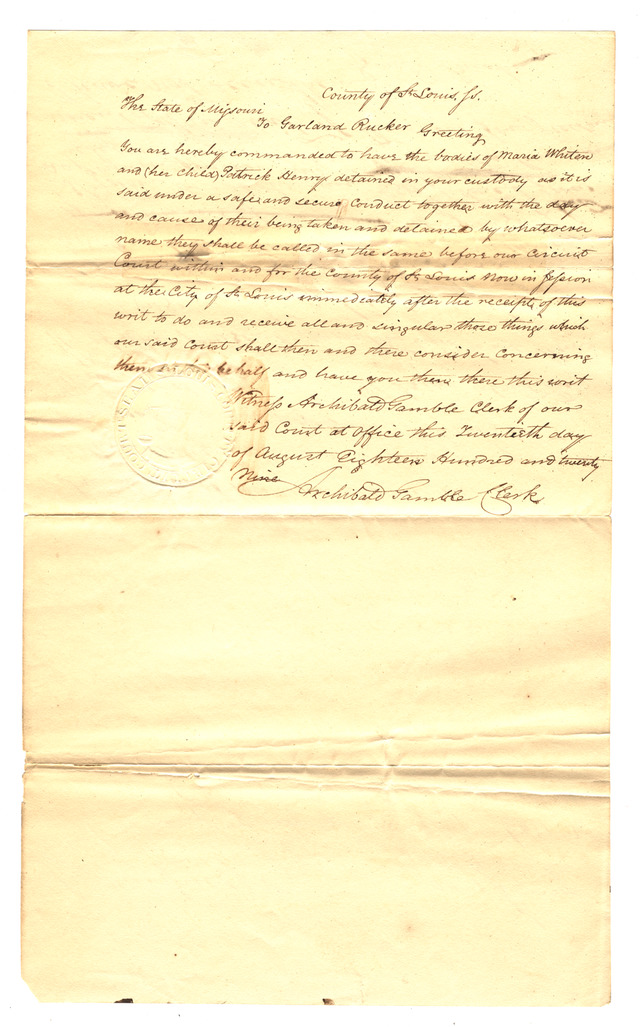 County of St Louis, ss.
The State of Missouri
To Garland Rucker Greeting
You are hereby commanded to have the bodies of Maria Whiten
and (her child) Patrick Henry detained in your custody as it is
said under a safe and secure Conduct together with the day
and cause of their being taken and detained by whatsoever
name they shall be called in the same before our Circuit
Court within and for the county of St Louis Now in session
at the City of St Louis immediately after the receipt of this
writ to do and receive all and singular those things which
our said Court shall then and there consider Concerning
them in this behalf and have you then there this writ
Witness Archibald Gamble Clerk of our
said Court at office this Twentieth day
of August Eighteen Hundred and twenty
Nine
Archibald Gamble Clerk